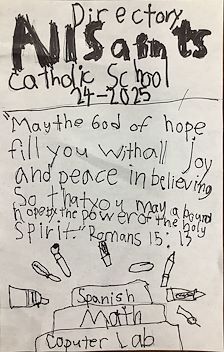 Directory
All Saints
Catholic School
24-2025
"May the God of hope
fill you withall joy
and peace in believing
So that you may a bound
hope by the power of the holy
Spirit." Romans 15:13
Spanish
Math
Coputer Lab